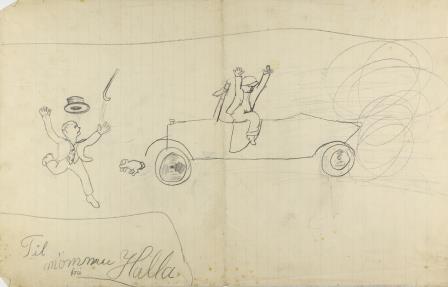 Til
mömmu
frá Halla.